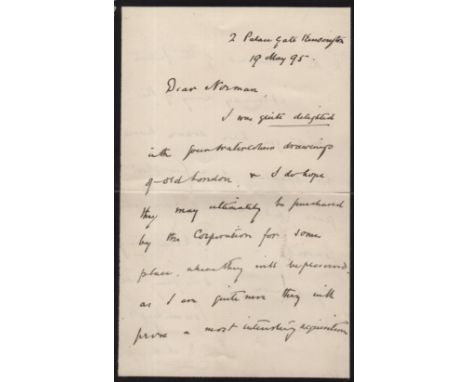 2 Palace Gate Kensington
19 May 95.
Dear Norman.
I was quite delighted
with your watercolour drawings
of old London. & I do hope
they may ultimately be purchased
by the Corporation for some
place, where they will be preserved.
as I am quite sure they will
prove a most interesting acquisition